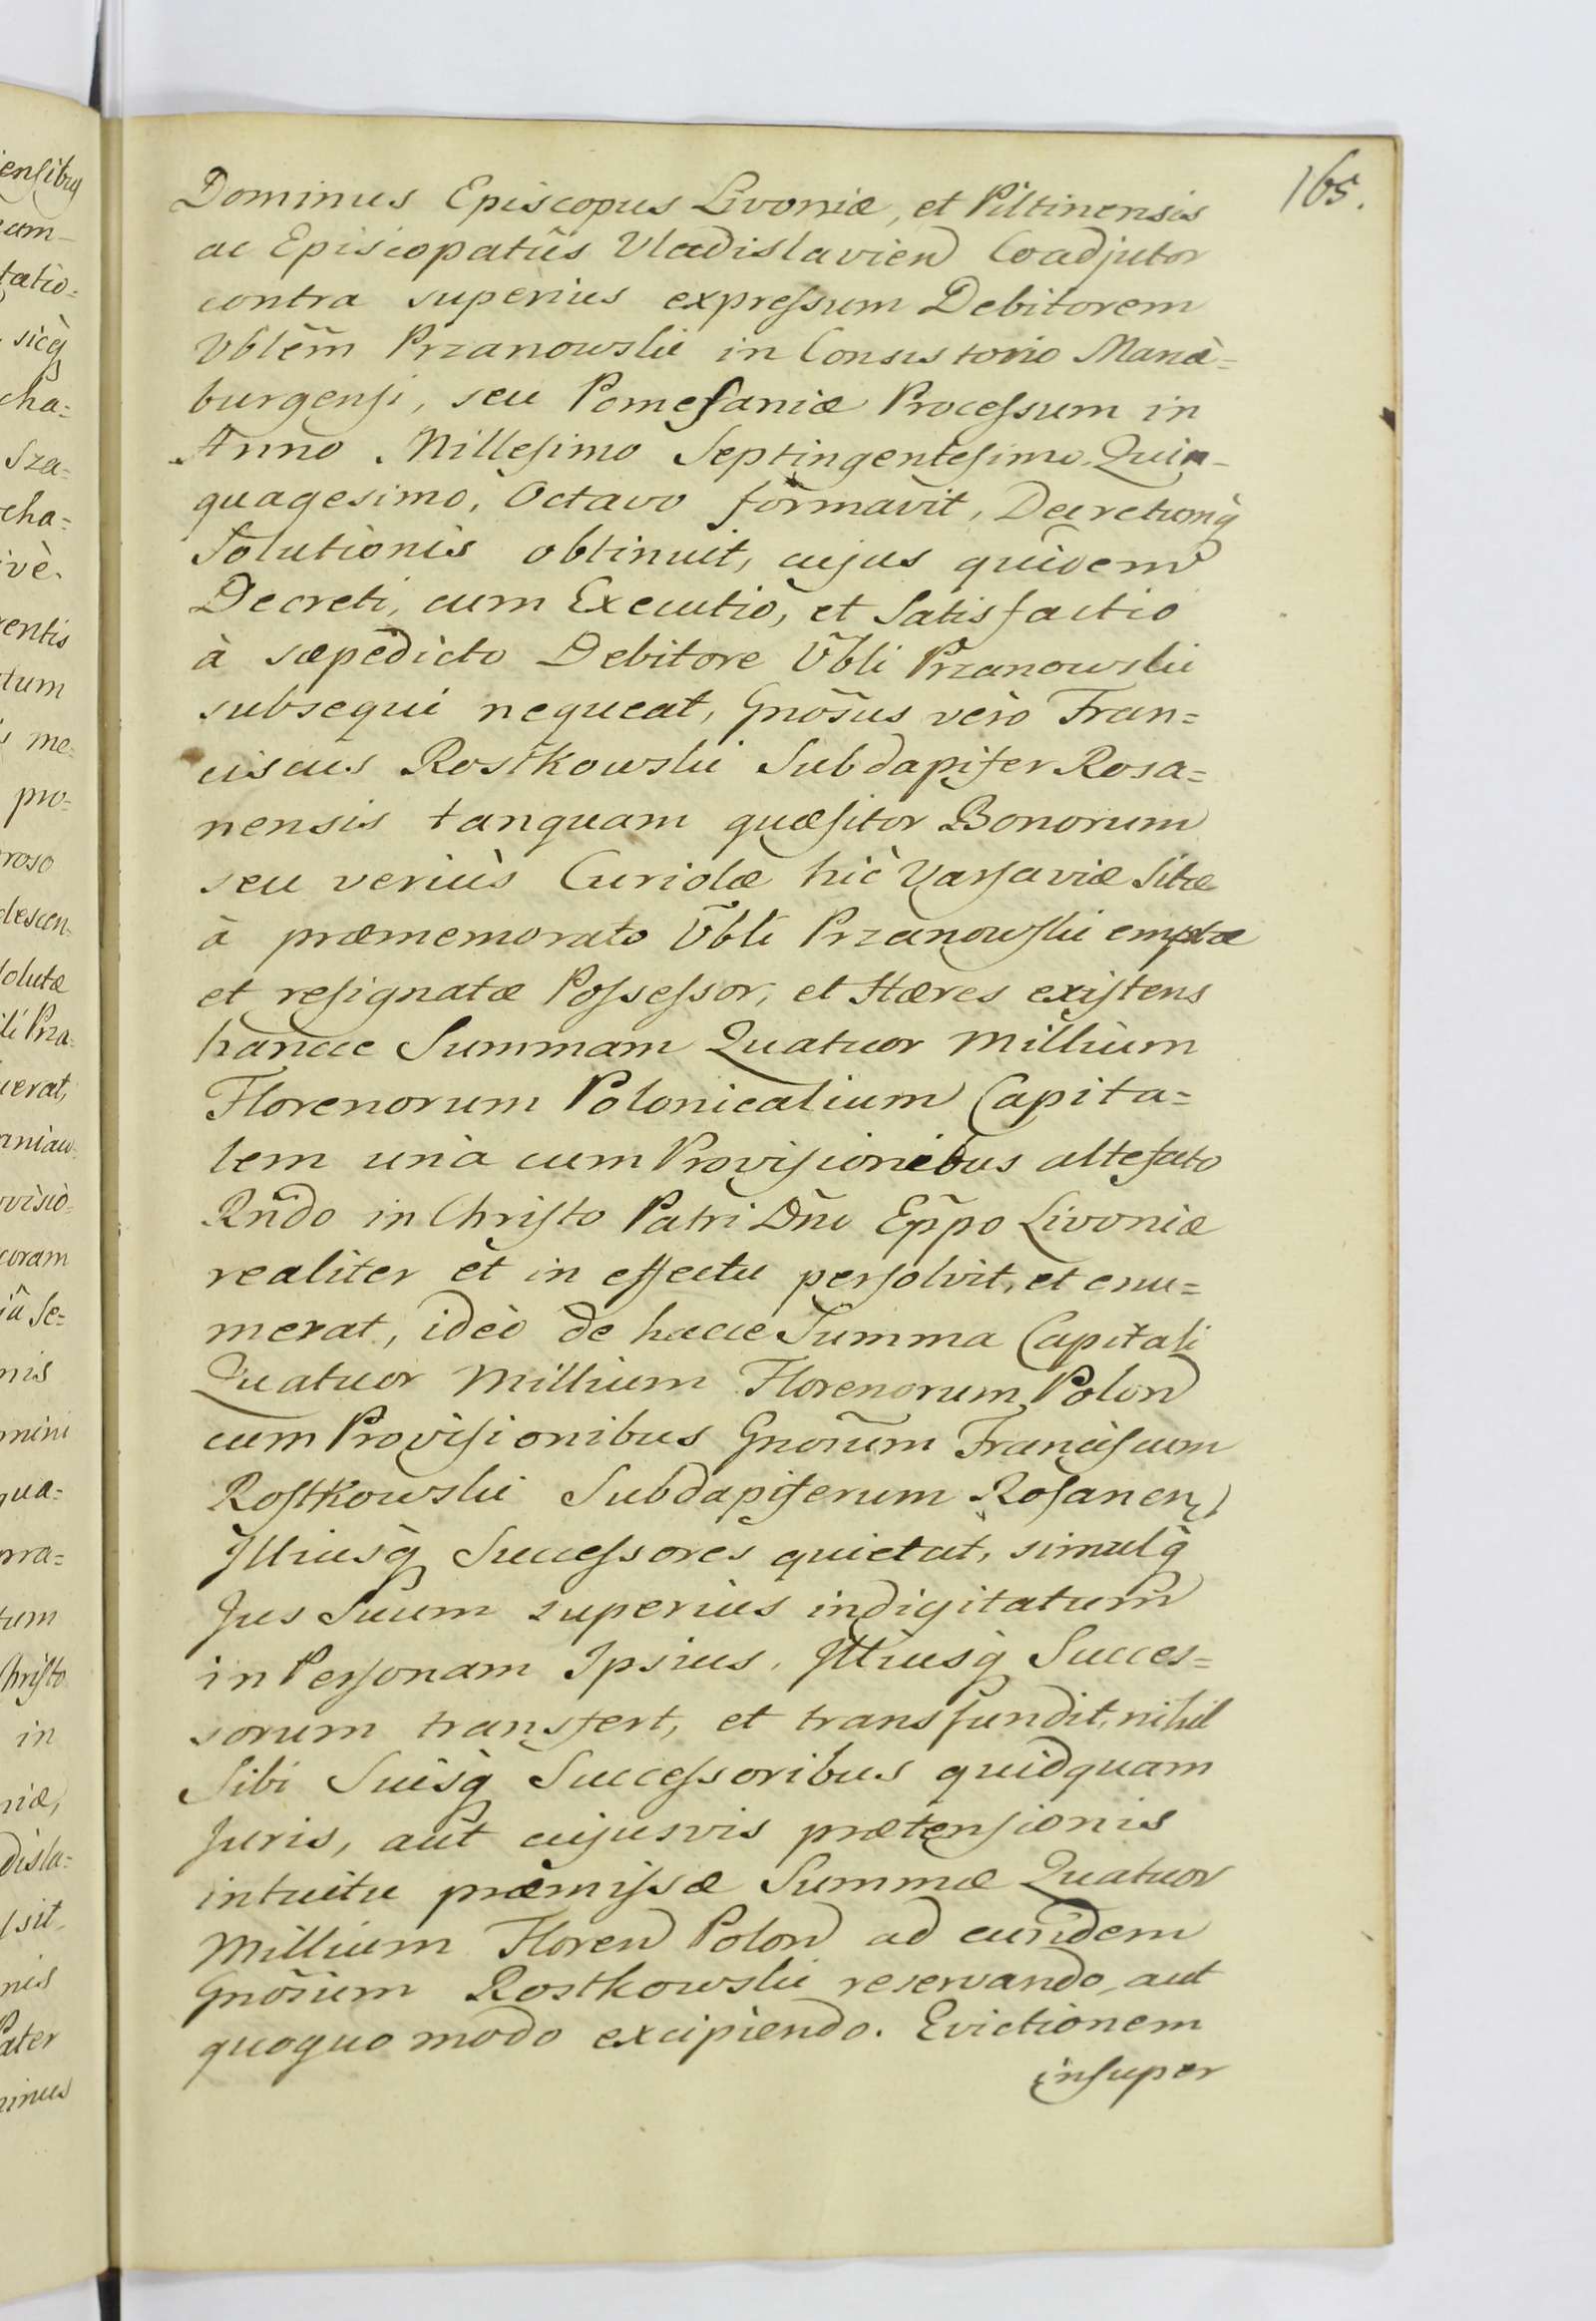 165.
Dominus Episcopus Livoniæ, et Piltinensis
ac Episcopatûs Vladislavien Coadjutor
contra superius expreſsum Debitorem
Vblẽm Przanowski in Consistorio Mariæ=
burgensi, seu Pomeſaniæ Proceſsum in
Anno Milleſimo Septingenteſimo Quin=
quagesimo, Octavo formavit, Decretumq̀
Solutionis obtinuit, cujus quidem
Decreti, cum Executio, et Satisfactio
à sæpedicto Debitore Ṽbli Przanowski
subsequi nequeat, Gnõsus verò Fran=
ciscus Rostkowski Subdapifer Rosa=
nensis tanquam quæſitor Bonorum
seu veriùs Curiolæ hìc Varſaviæ Sitæ
à præmemorato Ṽbli Przanowſki emptæ
et reſignatæ Poſseſsor, et Hæres exiſtens
hancce Summam Quatuor Millium
Florenorum Polonicalium Capita=
lem unà cum Proviſionibus altefato
Rñdo in Chriſto Patri Dño Epp̃o Livoniæ
realiter et in effectu perſolvit, et enu=
merat, ideò de hacce Summa Capitali
Quatuor Millium Florenorum Polon
cum Proviſionibus Gnõsum Franciſcum
Roſtkowski Subdapiferum Roſanen
Illiusq̀ Succeſsores quietat, simulq̀
Jus Suum superius indigitatum
in Perſonam Ipsius, Illiusq̀ Succes=
sorum transfert, et transfundit, nihil
Sibi Suisq̀ Succeſsoribus quidquam
Juris, aut cujusvis prætenſionis
intuitu præmiſsæ Summæ Quatuor
Millium Floren Polon ad eundem
Gnõsum Rostkowski reservando, aut
quoquo modo excipiendo. Evictionem
inſuper